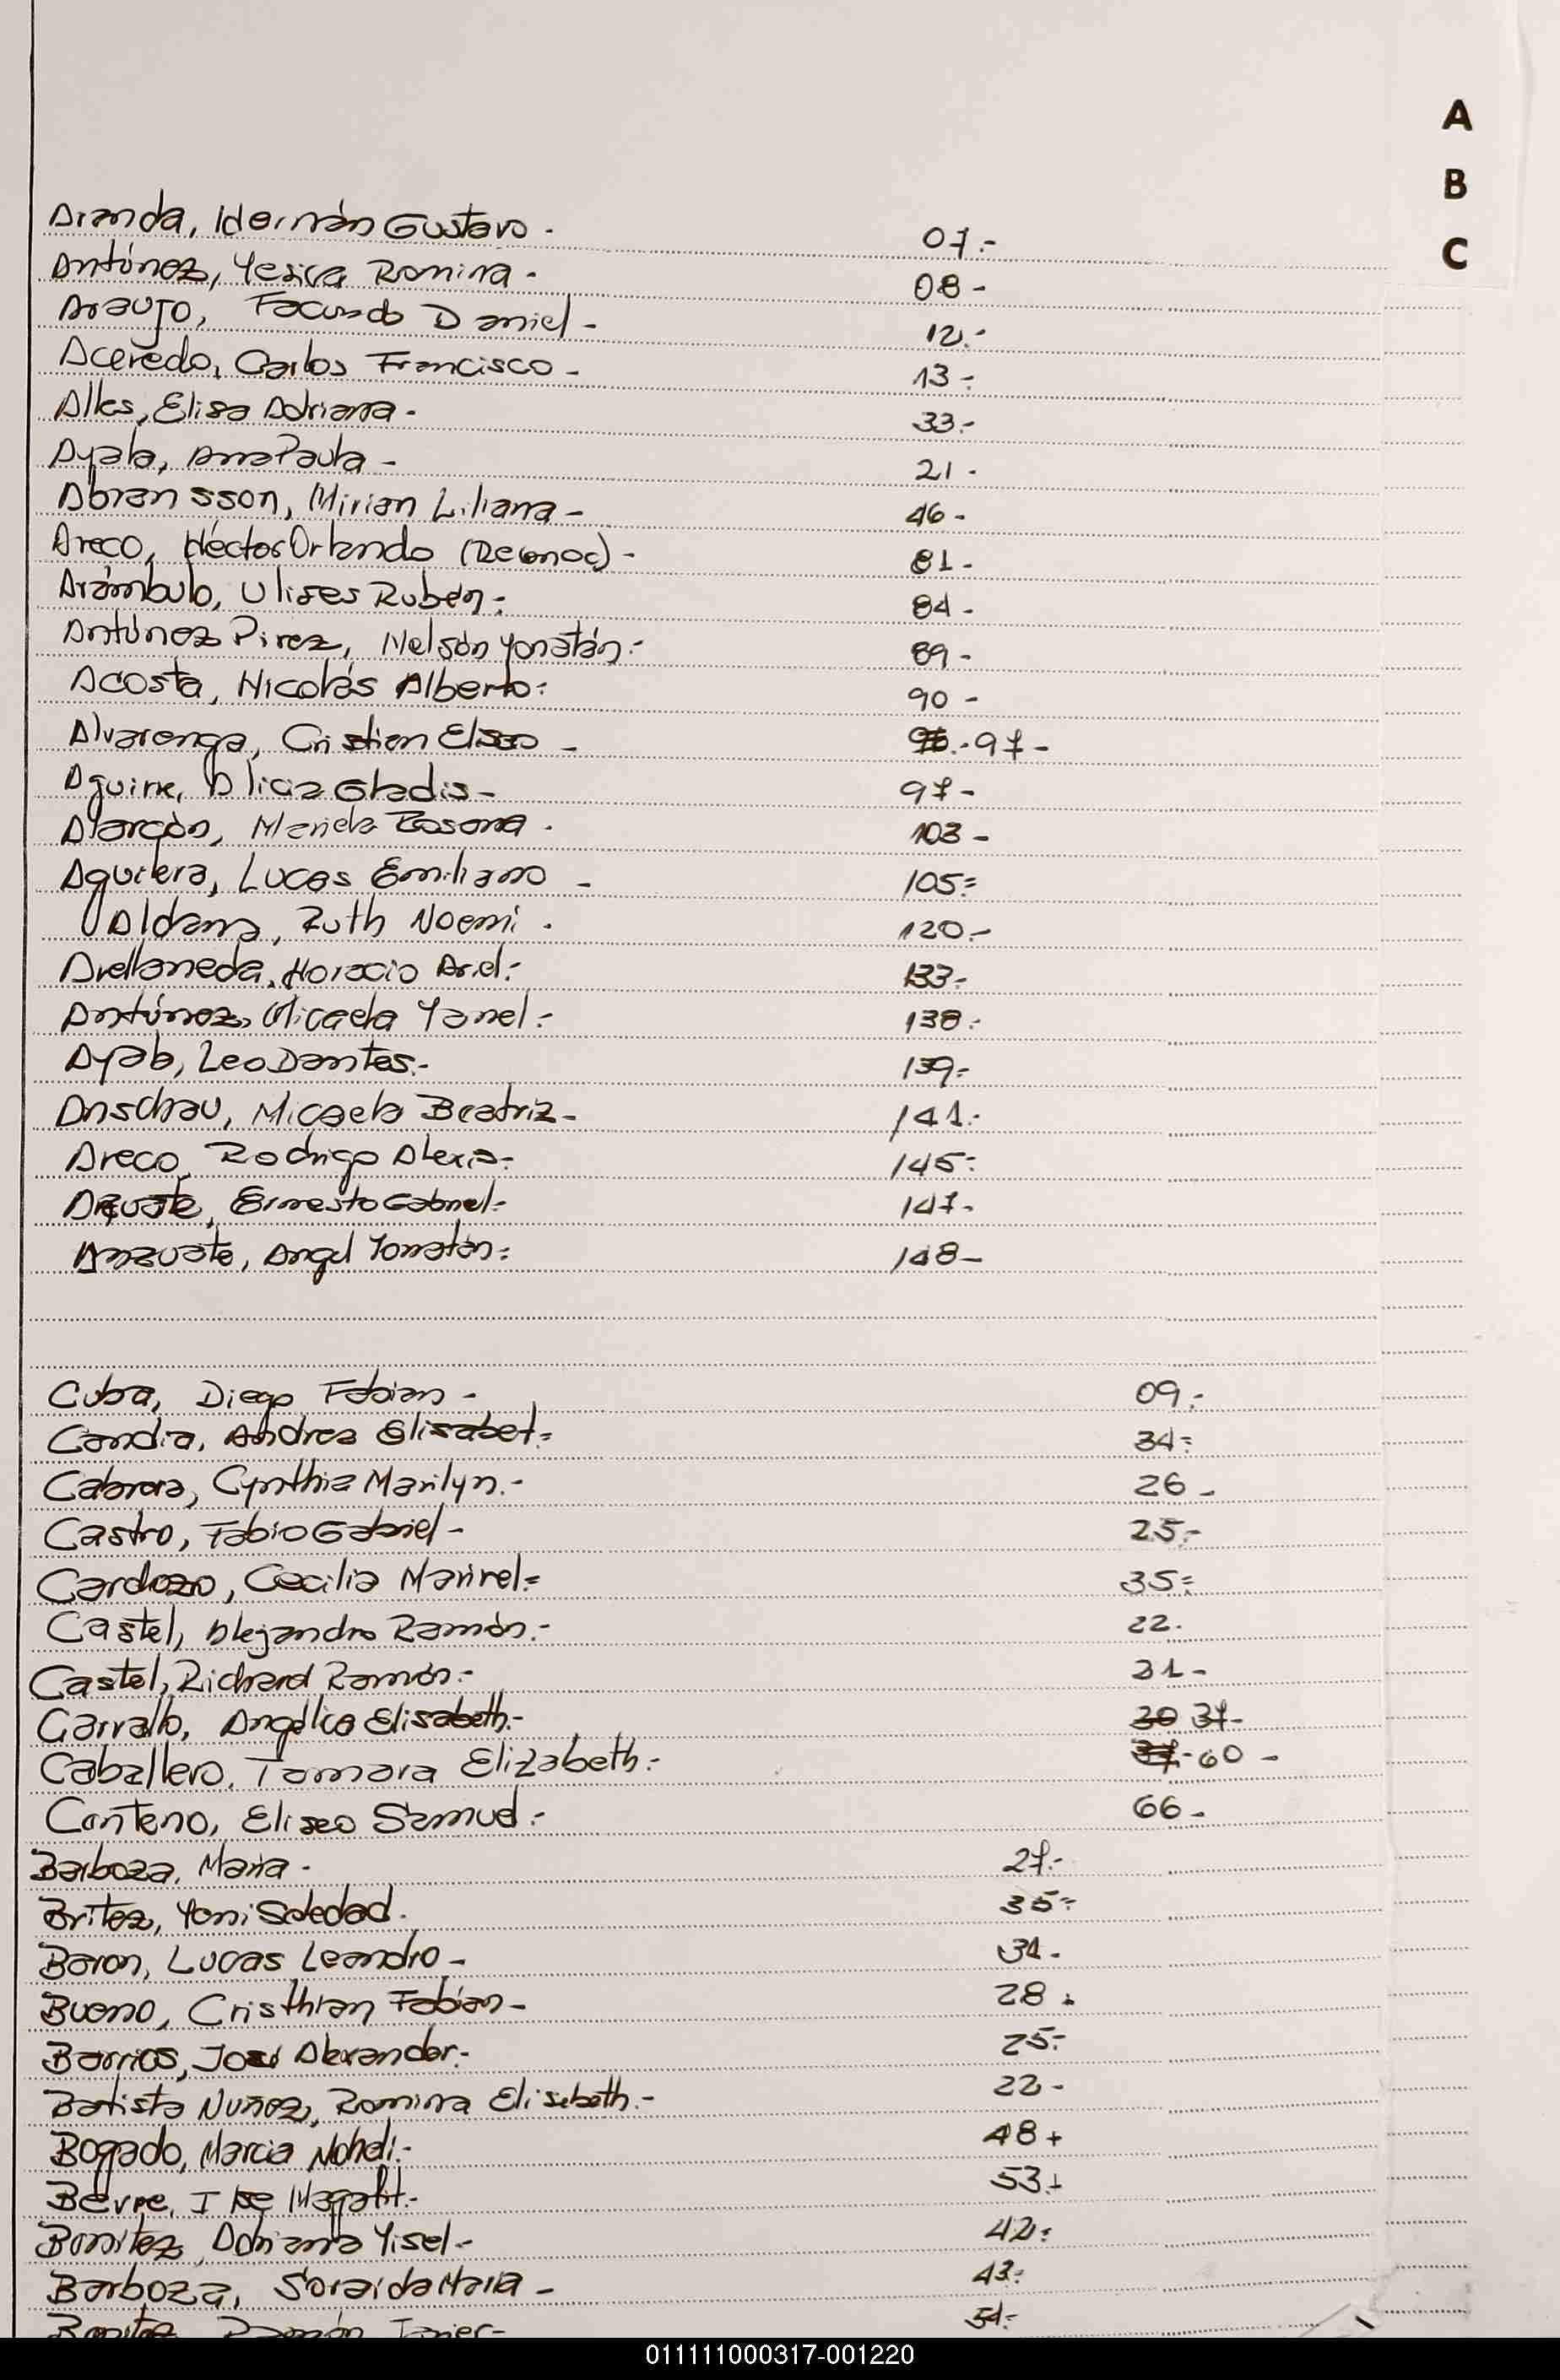 A
B
C
Aranda, Hernán Gustavo - 07.-
Antúnez, Yesica Romina - 08 -
Araujo, Facundo Daniel - 12.-
Acevedo, Carlos Francisco - 13 -
Alles, Elisa Adriana - 33.-
Ayala, Ana Paula - 21 -
Abransson, Mirian Liliana - 46 -
Areco, Héctor Orlando (Reconoc) - 81 -
Arámbulo, Ulises Rubén.- 84 -
Antúnez Pirez, Nelson Yonatán.- 89 -
Acosta, Nicolás Alberto.- 90 -
Alvarenga, Cristian Eliseo - 97 -
Aguirre, Alicia Gladis - 97 -
Alarcón, Mariela Rosana - 103 -
Aguilera, Lucas Emiliano - 105.-
Aldana, Ruth Noemi - 120.-
Avellaneda, Horacio Ariel.- 133.-
Antúnez, Micaela Yanel.- 138.-
Ayala, Leo Dantes.- 139.-
Anschau, Micaela Beatriz - 141.-
Areco, Rodrigo Alexis.- 145.-
Ernesto Gabriel.- 147.-
Angel Yonatán.- 148 -
Cuba, Diego Fabian - 09.-
Candia, Andrea Elisabet.- 34.-
Cabrera, Cynthia Marilyn.- 26 -
Castro, Fabio Gabriel - 25.-
Cardozo, Cecilia Marivel.- 35.-
Castel, Alejandro Ramón.- 22.
Castel, Richard Ramón.- 31 -
Carvallo, Angélica Elisabeth.- 30 37-
Caballero, Tamara Elizabeth.- 37.- 60 -
Centeno, Eliseo Samuel.- 66 -
Barboza, Maria - 27.-
Britez, Yoni Soledad. 35.-
Baron, Lucas Leandro - 31 -
Bueno, Cristhian Fabián - 28.
Barrios, José Alexander.- 25.-
Batista Nuñez, Romina Elisabeth.- 22 -
Bogado, Marcia Noheli.- 48 +
Ilse Magalit.- 53 +
Benitez, Adriana Yisel - 42.-
Barboza, Soraida Maria - 43.-
Benitez, Ramón Javier - 54.-
011111000317-001220